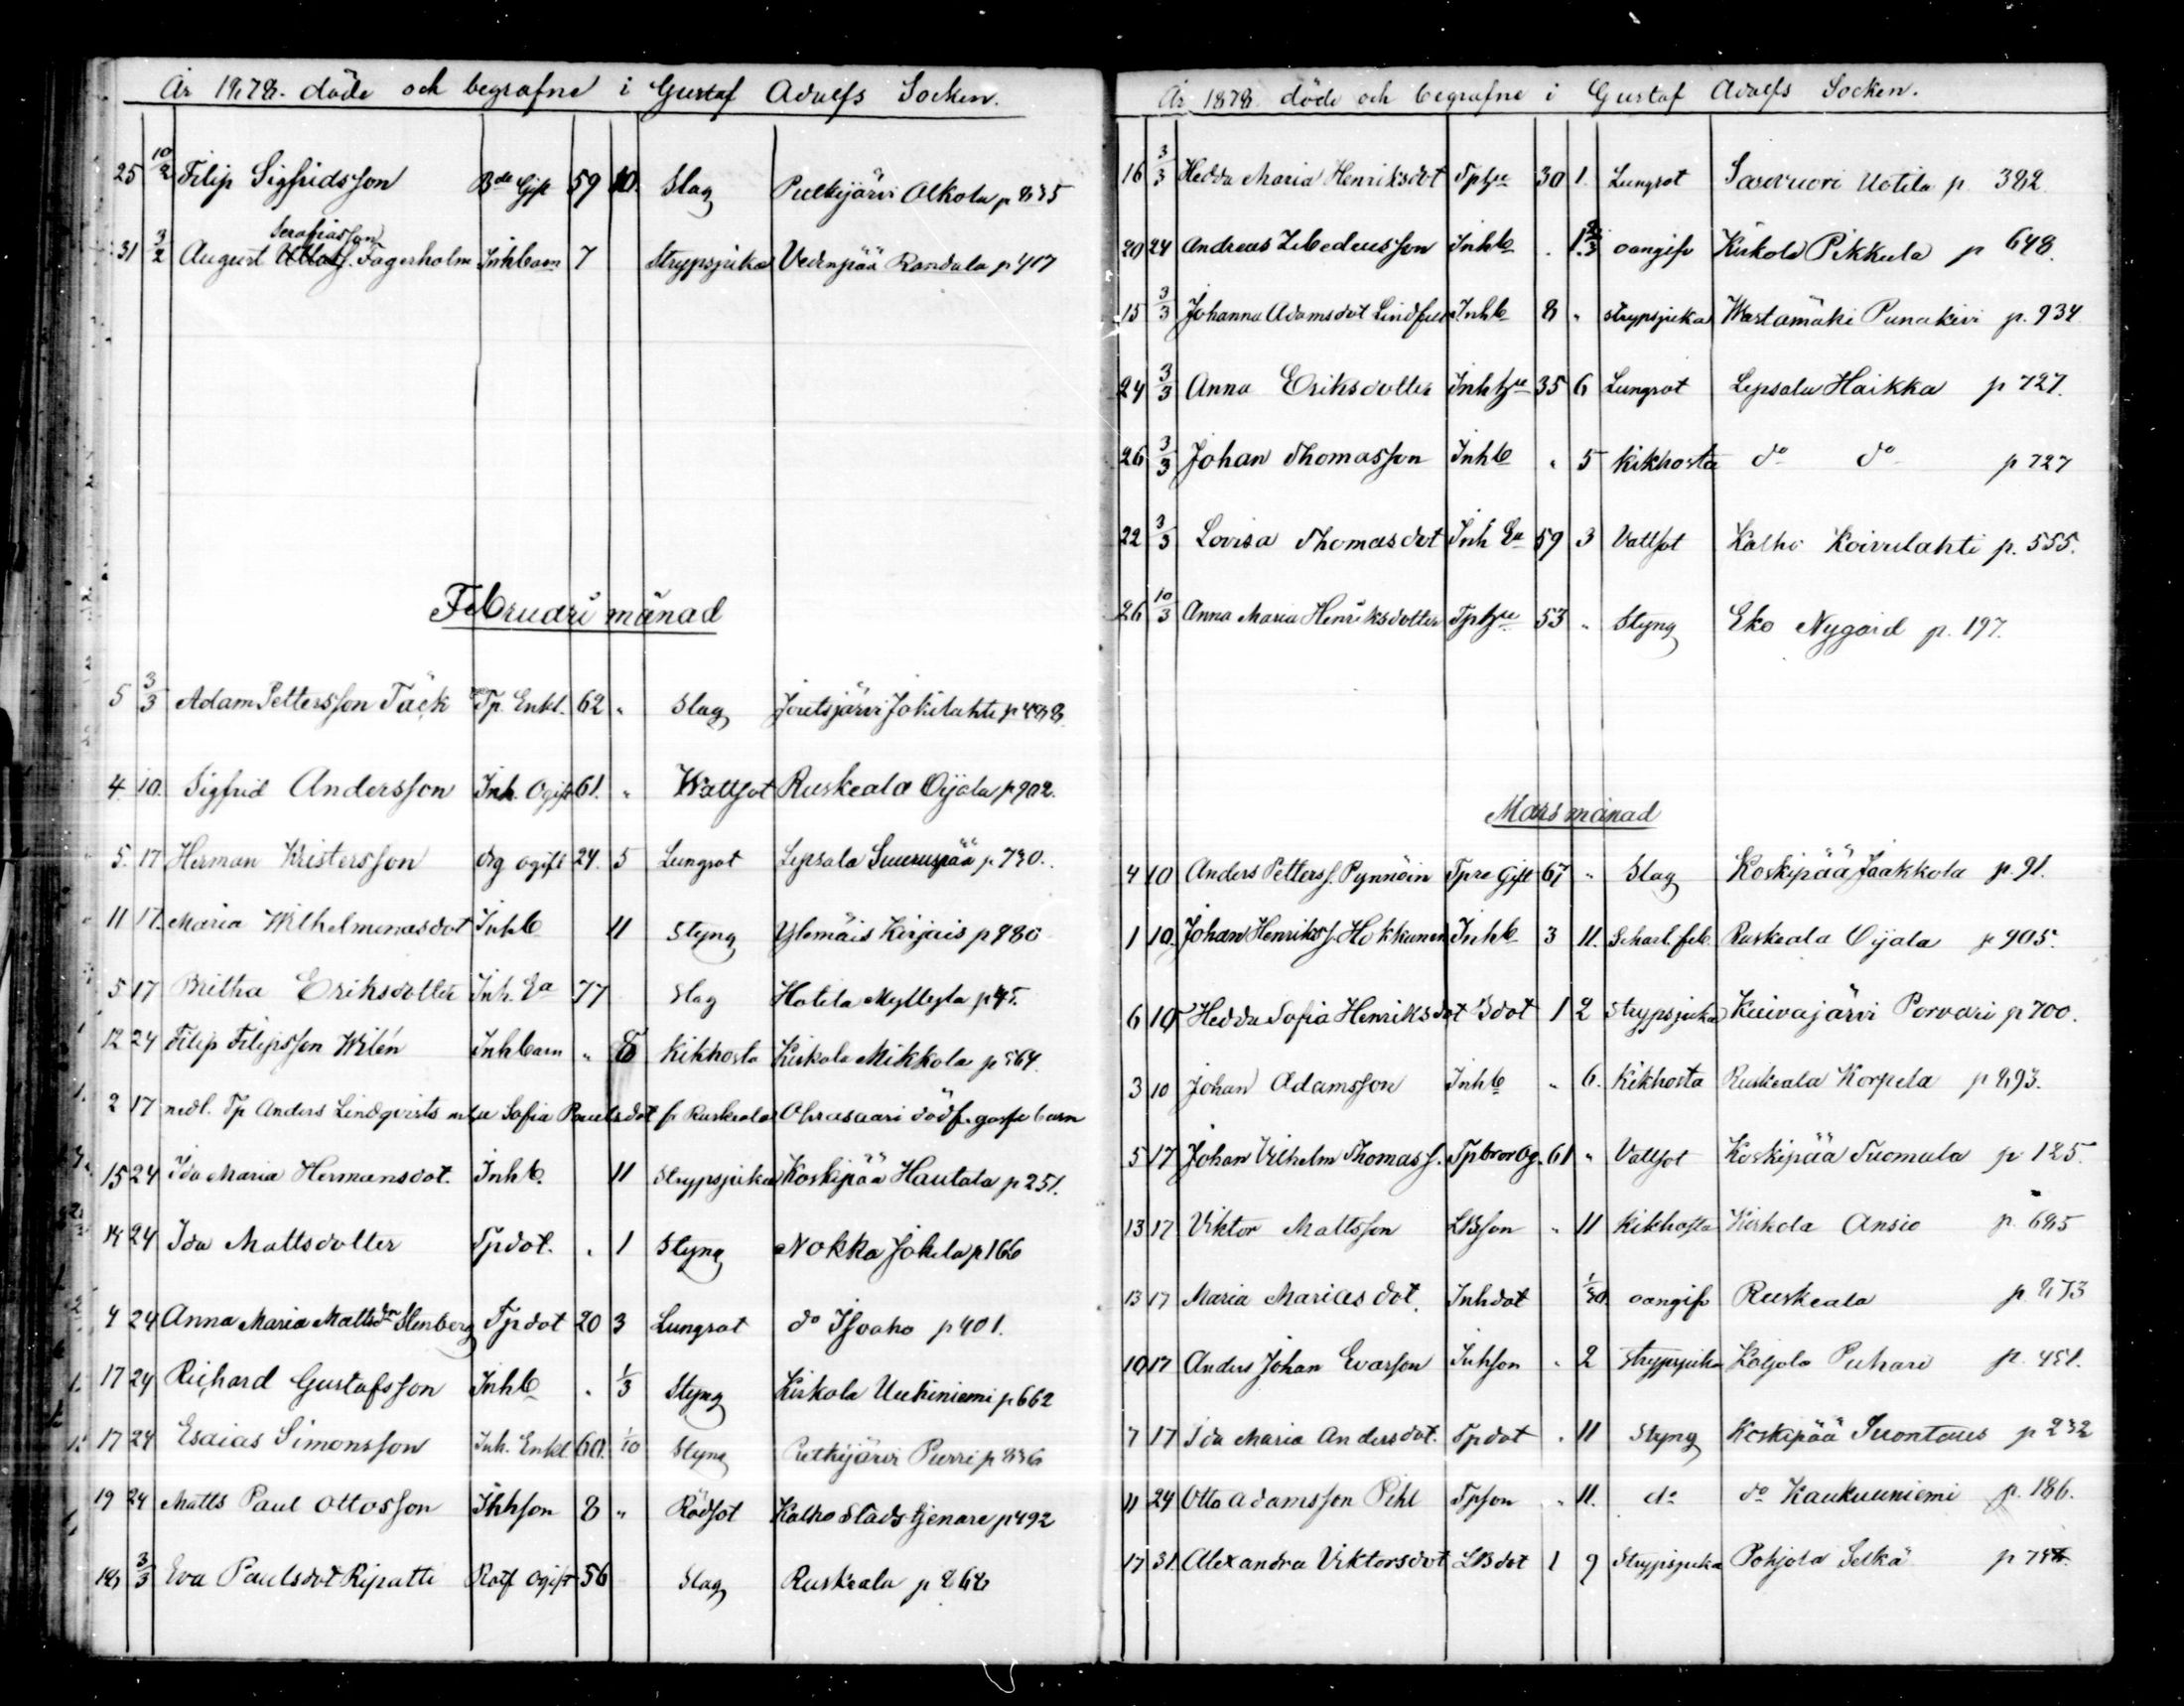 År 1878. döde och begrafne i Gustaf Adolfs Socken.
25 10/2 Filip Sigfridsson Bde Gift 59 10. Slag Putkijärvi Alkola p 835
Serafiasson
31 3/2 August Fagerholm Inhbarn 7 Strypsjuka Vedenpää Randala p 417
Februari månad
5 3/3 Adam Pettersson Täck Tp. Enkl. 62 " Slag Joutsjärvi Jokilahti p 488
4. 10. Sigfrid Andersson Inh. Ogift 61. " Wattsot Ruskeala Oijala p 902.
5. 17 Herman Kristersson drg ogift 24. 5 Lungsot Lepsala Suurupää p 730.
11 17. Maria Wilhelminasdot Inhb 11 Styng Ylemäis Kirjais p 980
5 17 Britha Eriksdotter Inh. Ea 77 Slag Hotila Myllylä p 45.
12 24 Filip Filipsson Wilén Inhbarn " 8 Kikhosta Kirkola Mikkola p 564.
2 17 nedl. Tp Anders Lindqvists m hu Sofia Paulsdot fr Ruskeala Ohrasaari dödf. gosse barn
15 24 Ida Maria Hermansdot. Inhb. 11 Strypsjuka Koskipää Hautala p 251.
14 24 Ida Mattsdotter Tpdot. " 1 Styng Nokka Jokela p 166
4 24 Anna Maria Mattsdr Stenberg Tpdot 20 3 Lungsot do Isoaho p 401.
17 24 Richard Gustafsson Inhb " 1/3 Styng Kirkola Uutiniemi p 662
17 24 Esaias Simonsson Inh. Enkl. 60. 1/10 Styng Putkijärvi Purri p 836
19 24 Matts Paul Ottosson Inhson 8 " Rödsot Kalho Stadstjenare p 492
18 3/3 Eva Paulsdot Ripatti Rotf Ogift 56 Slag Ruskeala p 868
År 1878 döde och begrafne i Gustaf Adolfs Socken.
16 3/3 Hedda Maria Henriksdot Tphu 30 1. Lungsot Saserori Uotila p. 382
20 24 Andreas Zebedeusson Inhb " 1 2/3 oangifv Kirkola Pikkula p 648.
15 3/3 Johanna Adamsdot Lindfors Inhb 8 " Strypsjuka Wastamäki Punakivi p. 934
24 3/3 Anna Eriksdotter Inhhu 35 6 Lungsot Lepsala Haikka p 727.
26 3/3 Johan Thomasson Inhb " 5 Kikhosta do do p 727
22 3/3 Lovisa Thomasdot Inh Ea 59 3 Vattsot Kalho Koivulahti p. 555.
26 10/3 Anna Maria Henriksdotter Tphu 53 " Styng Eko Nygård p. 197.
Mars månad
4 10 Anders Petterss. Pynnöin Tpre Gift 67 " Slag Koskipää Jaakkola p. 91.
1 10. Johan Henrikss. Hokkanen Inhb 3 11. Scharl. feb. Ruskeala Oijala p 905.
6 10 Hedda Sofia Henriksdot Bdot 1 2 Strypsjuka Kuivajärvi Porvari p 700.
3 10 Johan Adamsson Inhb " 6. Kikhosta Ruskeala Korpela p 893.
5 17 Johan Vilhelm Thomass. Tpbror Og. 61 " Vattsot Koskipää Tuomala p 125.
13 17 Viktor Mattsson LBson " 11 Kikhosta Kirkola Ansio p. 685
13 17 Maria Mariasdot Inhdot 1/30 oangifv Ruskeala p 873
10 17 Anders Johan Evasson Inhson " 2 Strypsjuka Kaljola Puhari p. 451.
7 17 Ida Maria Andersdot. Tpdot " 11 Styng Koskipää Suontaus p 232
11 24 Otto Adamsson Pihl Tpson " 11. do do Kaukuuniemi p. 186.
17 31. Alexandra Viktorsdot LBdot 1 9 Strypsjuka Pohjola Selkä